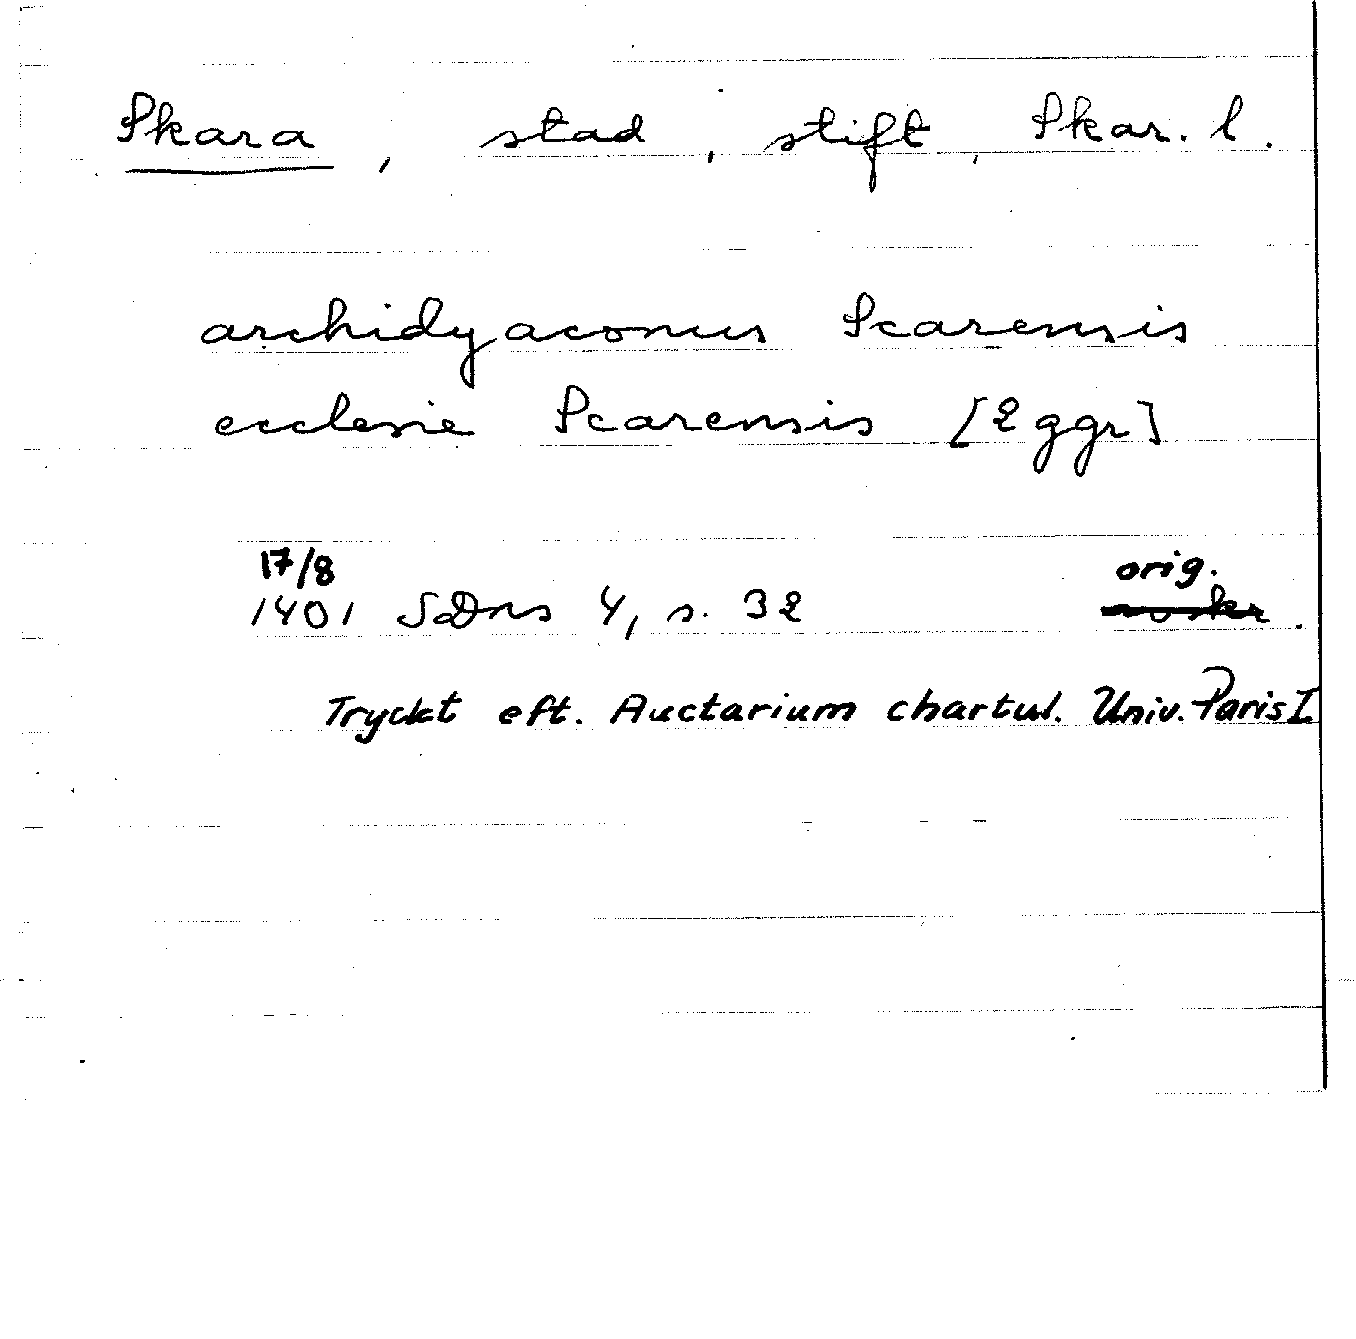 Skara, stad, stift, Skar. l.
archidyaconus Scarensis
ecclesie Scarensis [2 ggr]
17/8 orig.
1401 SDns 4, s. 32 avskr.
Tryckt eft. Auctarium chartul. Univ. Paris I.